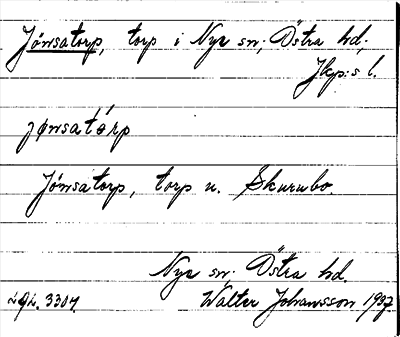 Jönsatorp, torp i Nye sn, Östra hd.
Jkp:s l.
jønsatórp
Jönsatorp, torp u. Skurubo.
Nye sn. Östra hd.
Walter Johansson 1937